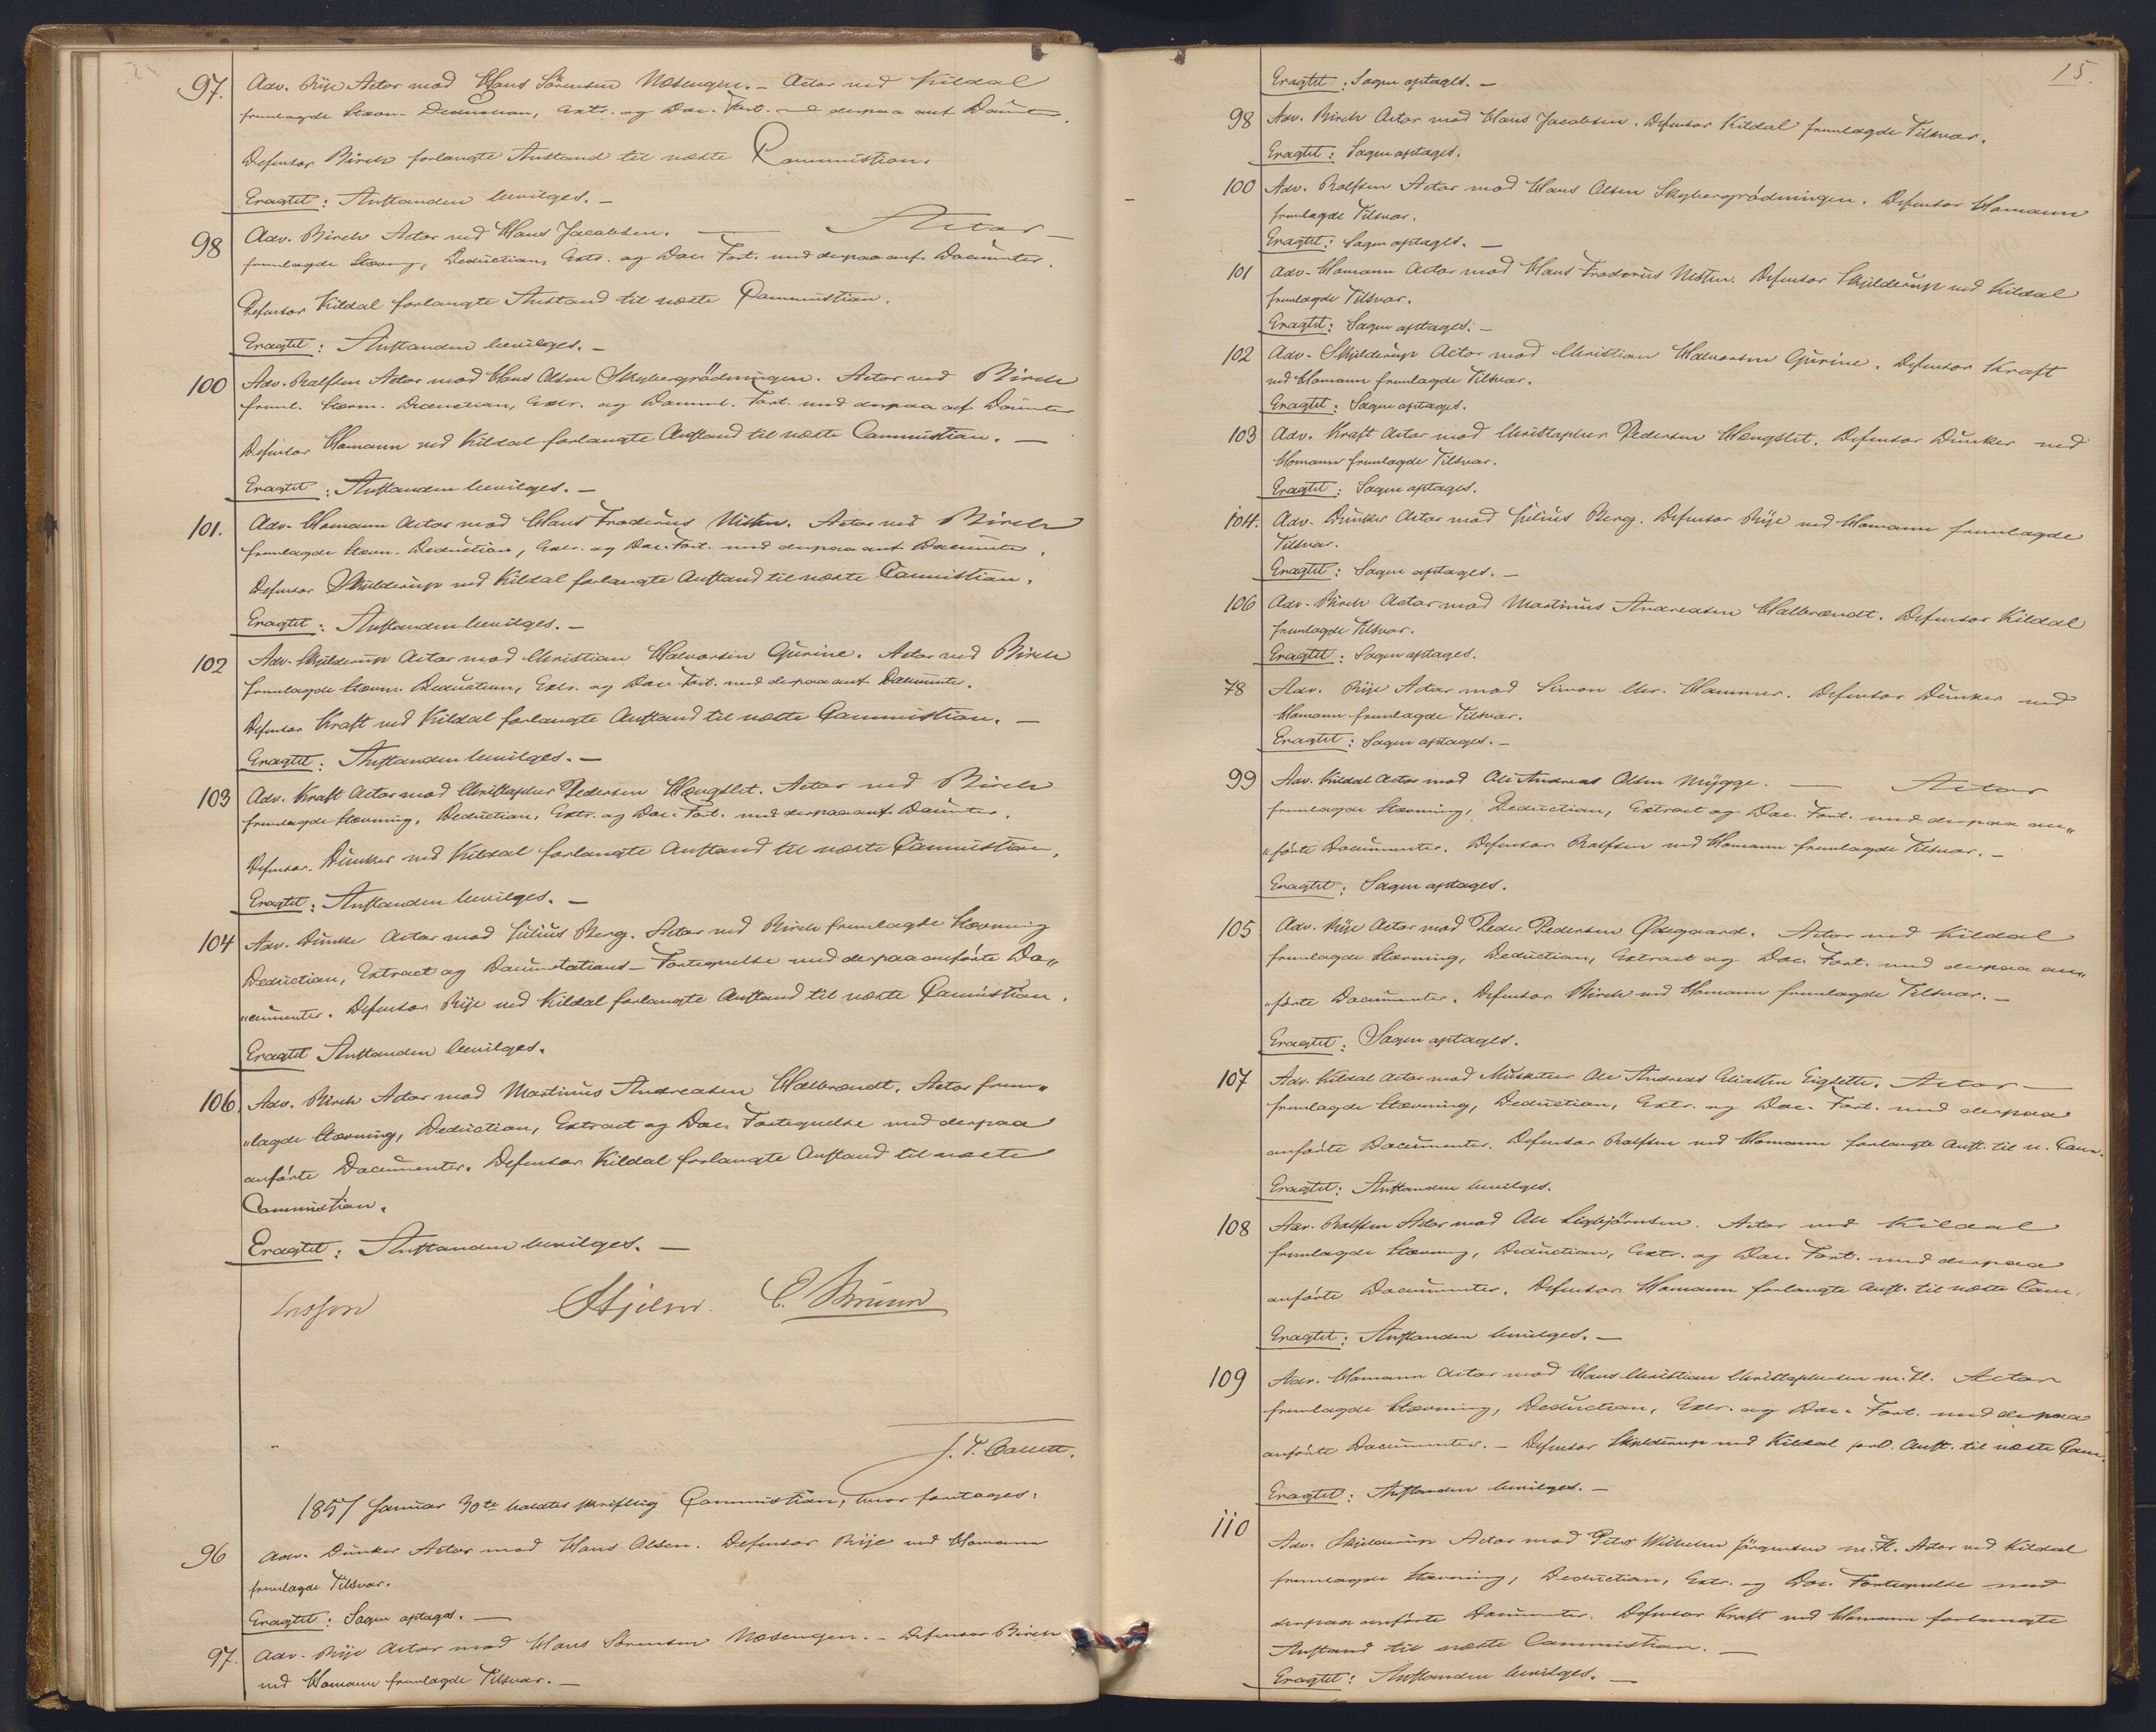 97. Adv. Rije Actor mod Hans Sörensen Næsengen. - Actor ved Kildal
fremlagde Stævn. Deduction, Extr. og Doc. Fort. med derpaa anf. Docum̅ter.
Defensor Birch forlangte Anstand til næste Commission.
Eragtet: Anstanden bevilges. -
98 Adv. Birch Actor mod Hans Jacobsen. — Actor —
fremlagde Stævning, Deduction, Extr. og Doc. Fort. med derpaa anf. Documenter.
Defensor Kildal forlangte Anstand til næste Commission.
Eragtet: Anstanden bevilges. -
100 Adv. Rolfsen Actor mod Hans Olsen Skybergrödningen. Actor ved Birch
freml. Stævn. Deduction, Extr. og Docum. Fort. med derpaa anf. Docum̅ter
Defensor Homann ved Kildal forlangte Anstand til næste Commission. —
Eragtet: Anstanden bevilges. -
101. Adv. Homann Actor mod Hans Fredrius Actor ved Birch
fremlagde Stævn. Deduction, Extr. og Doc. Fort. med derpaa anf. Documenter.
Defensor Skjelderup ved Kildal forlangte Anstand til næste Commission.
Eragtet: Anstanden bevilges. -
102 Adv. Skjelderup Actor mod Christian Halvorsen Gurine. Actor ved Birch
fremlagde Stævn. Deduction, Extr. og Doc. Fort. med derpaa anf. Documenter.
Defensor Kraft ved Kildal forlangte Anstand til næste Commission. —
Eragtet: Anstanden bevilges. -
103 Adv. Kraft Actor mod Christopher Pedersen Hengslet. Actor ved Birch
fremlagde Stævning, Deduction, Extr. og Doc. Fort. med derpaa anf. Docum̅ter.
Defensor Dunker ved Kildal forlangte Anstand til næste Commission.
Eragtet: Anstanden bevilges. -
104 Adv. Dunker Actor mod Julius Berg. Actor ved Birch fremlagde Stævning
Deduction, Extract og Documetations-Fortegnelse med derpaa anförte Do„
„cumenter. Defensor Rije ved Kildal forlangte Anstand til næste Commission.
Eragtet Anstanden bevilges.
106. Adv. Birch Actor mod Martinus Andreasen Halbrændt. Actor frem„
„lagde Stævning, Deduction, Extract og Doc. Fortegnelse med derpaa
anförte Documenter. Defensor Kildal forlangte Anstand til næste
Commission.
Eragtet: Anstanden bevilges. —
Lasson Hjelm. C. Bruun
J. P. Collett.
1857 Januar 30te holdtes skriftlig Commission, hvor foretages:
96 Adv. Dunker Actor mod Hans Olsen. Defensor Rije ved Homann
fremlagde Tilsvar.
Eragtet: Sagen optages. —
97. Adv. Rije Actor mod Hans Sörensen Næsengen. - Defensor Birch
ved Homann fremlagde Tilsvar. —
15.
Eragtet: Sagen optages. -
98 Adv. Birch Actor mod Hans Jacobsen. Defensor Kildal fremlagde Tilsvar.
Eragtet: Sagen optages.
100 Adv. Rolfsen Actor mod Hans Olsen Skybergrödningen. Defensor Homann
fremlagde Tilsvar.
Eragtet: Sagen optages. —
101 Adv. Homann Actor mod Hans Fredrius Defensor Skjelderup ved Kildal
fremlagde Tilsvar.
Eragtet: Sagen optages. —
102 Adv. Skjelderup Actor mod Christian Halvorsen Gurine. Defensor Kraft
ved Homann fremlagde Tilsvar.
Eragtet: Sagen optages.
103 Adv. Kraft Actor mod Christopher Pedersen Hengslet. Defensor Dunker ved
Homann fremlagde Tilsvar.
Eragtet: Sagen optages.
104. Adv. Dunker Actor mod Julius Berg. Defensor Rije ved Homann fremlagde
Tilsvar.
Eragtet: Sagen optages. —
106 Adv. Birch Actor mod Martinus Andreasen Halbrændt. Defensor Kildal
fremlagde Tilsvar.
Eragtet: Sagen optages.
78 Adv. Rije Actor mod Simon Chr. Hammer. Defensor Dunker ved
Homann fremlagde Tilsvar.
Eragtet: Sagen optages. —
99 Adv. Kildal Actor mod Ole Andreas Olsen Mÿgge. — Actor
fremlagde Stævning, Deduction, Extract og Doc. Fort. med derpaa an„
„förte Documenter. Defensor Rolfsen ved Homann fremlagde Tilsvar. —
Eragtet: Sagen optages.
105 Adv. Rije Actor mod Peder Pedersen Ødegaard. Actor ved Kildal
fremlagde Stævning, Deduction, Extract og Doc. Fort. med derpaa an„
„förte Documenter. Defensor Birch ved Homann fremlagde Tilsvar. —
Eragtet: Sagen optages.
107 Adv. Kildal Actor mod Musketeer Ole Andreas Eliassen Eigsette. Actor —
fremlagde Stævning, Deduction, Extr. og Doc. Fort. med derpaa
anförte Documenter. Defensor Rolfsen ved Homann forlangte Anst. til n. Com.
Eragtet: Anstanden bevilges.
108 Adv. Rolfsen Actor mod Ole Sigbjörnsen. Actor ved Kildal
fremlagde Stævning, Deduction, Extr. og Doc. Fort. med derpaa
anförte Documenter. Defensor Homann forlangte Anst. til næste Com.
Eragtet: Anstanden bevilges. —
109 Adv. Homann Actor mod Hans Christian Christophersen m. Fl. Actor
fremlagde Stævning, Deduction, Extr. og Doc. Fort. med derpaa
anförte Documenter. - Defensor Skjelderup ved Kildal forl. Anst. til næste Com.
Eragtet: Anstanden bevilges. —
110 Adv. Skjelderup Actor mod Peter Wilhelm Jörgensen m. Fl. Actor ved Kildal
fremlagde Stævning, Deduction, Extr. og Doc. Fortegnelse med
derpaa anförte Documenter. Defensor Kraft ved Homann forlangte
Anstand til næste Commission. —
Eragtet: Anstanden bevilges. —